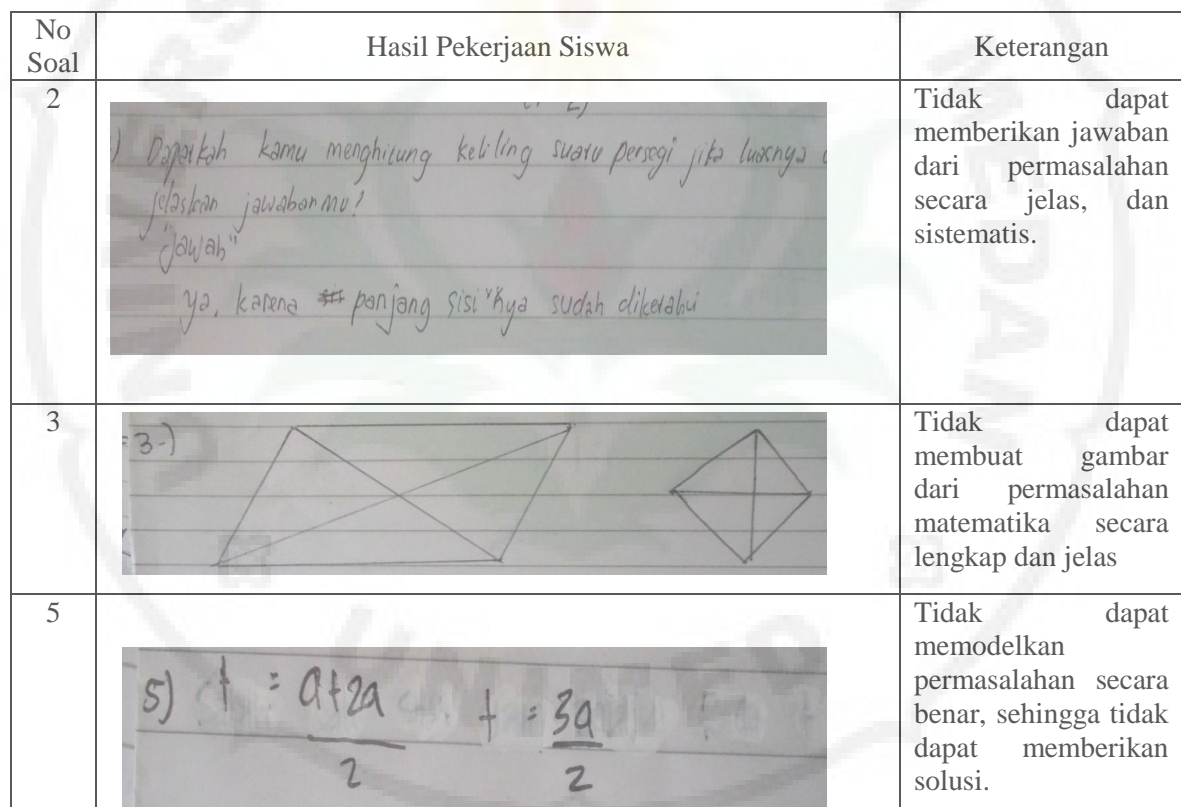 No Soal
Hasil Pekerjaan Siswa
Keterangan
2
) Dapatkah kamu menghitung keliling suatu persegi jika luasnya
jelaskan jawabanmu?
"Jawab"
ya, karena panjang sisi"nya sudah diketahui
Tidak dapat
memberikan jawaban
dari permasalahan
secara jelas, dan
sistematis.
3
3.)
Tidak dapat
membuat gambar
dari permasalahan
matematika secara
lengkap dan jelas
5
5) t = a+2a t = 3a
2 2
Tidak dapat
memodelkan
permasalahan secara
benar, sehingga tidak
dapat memberikan
solusi.